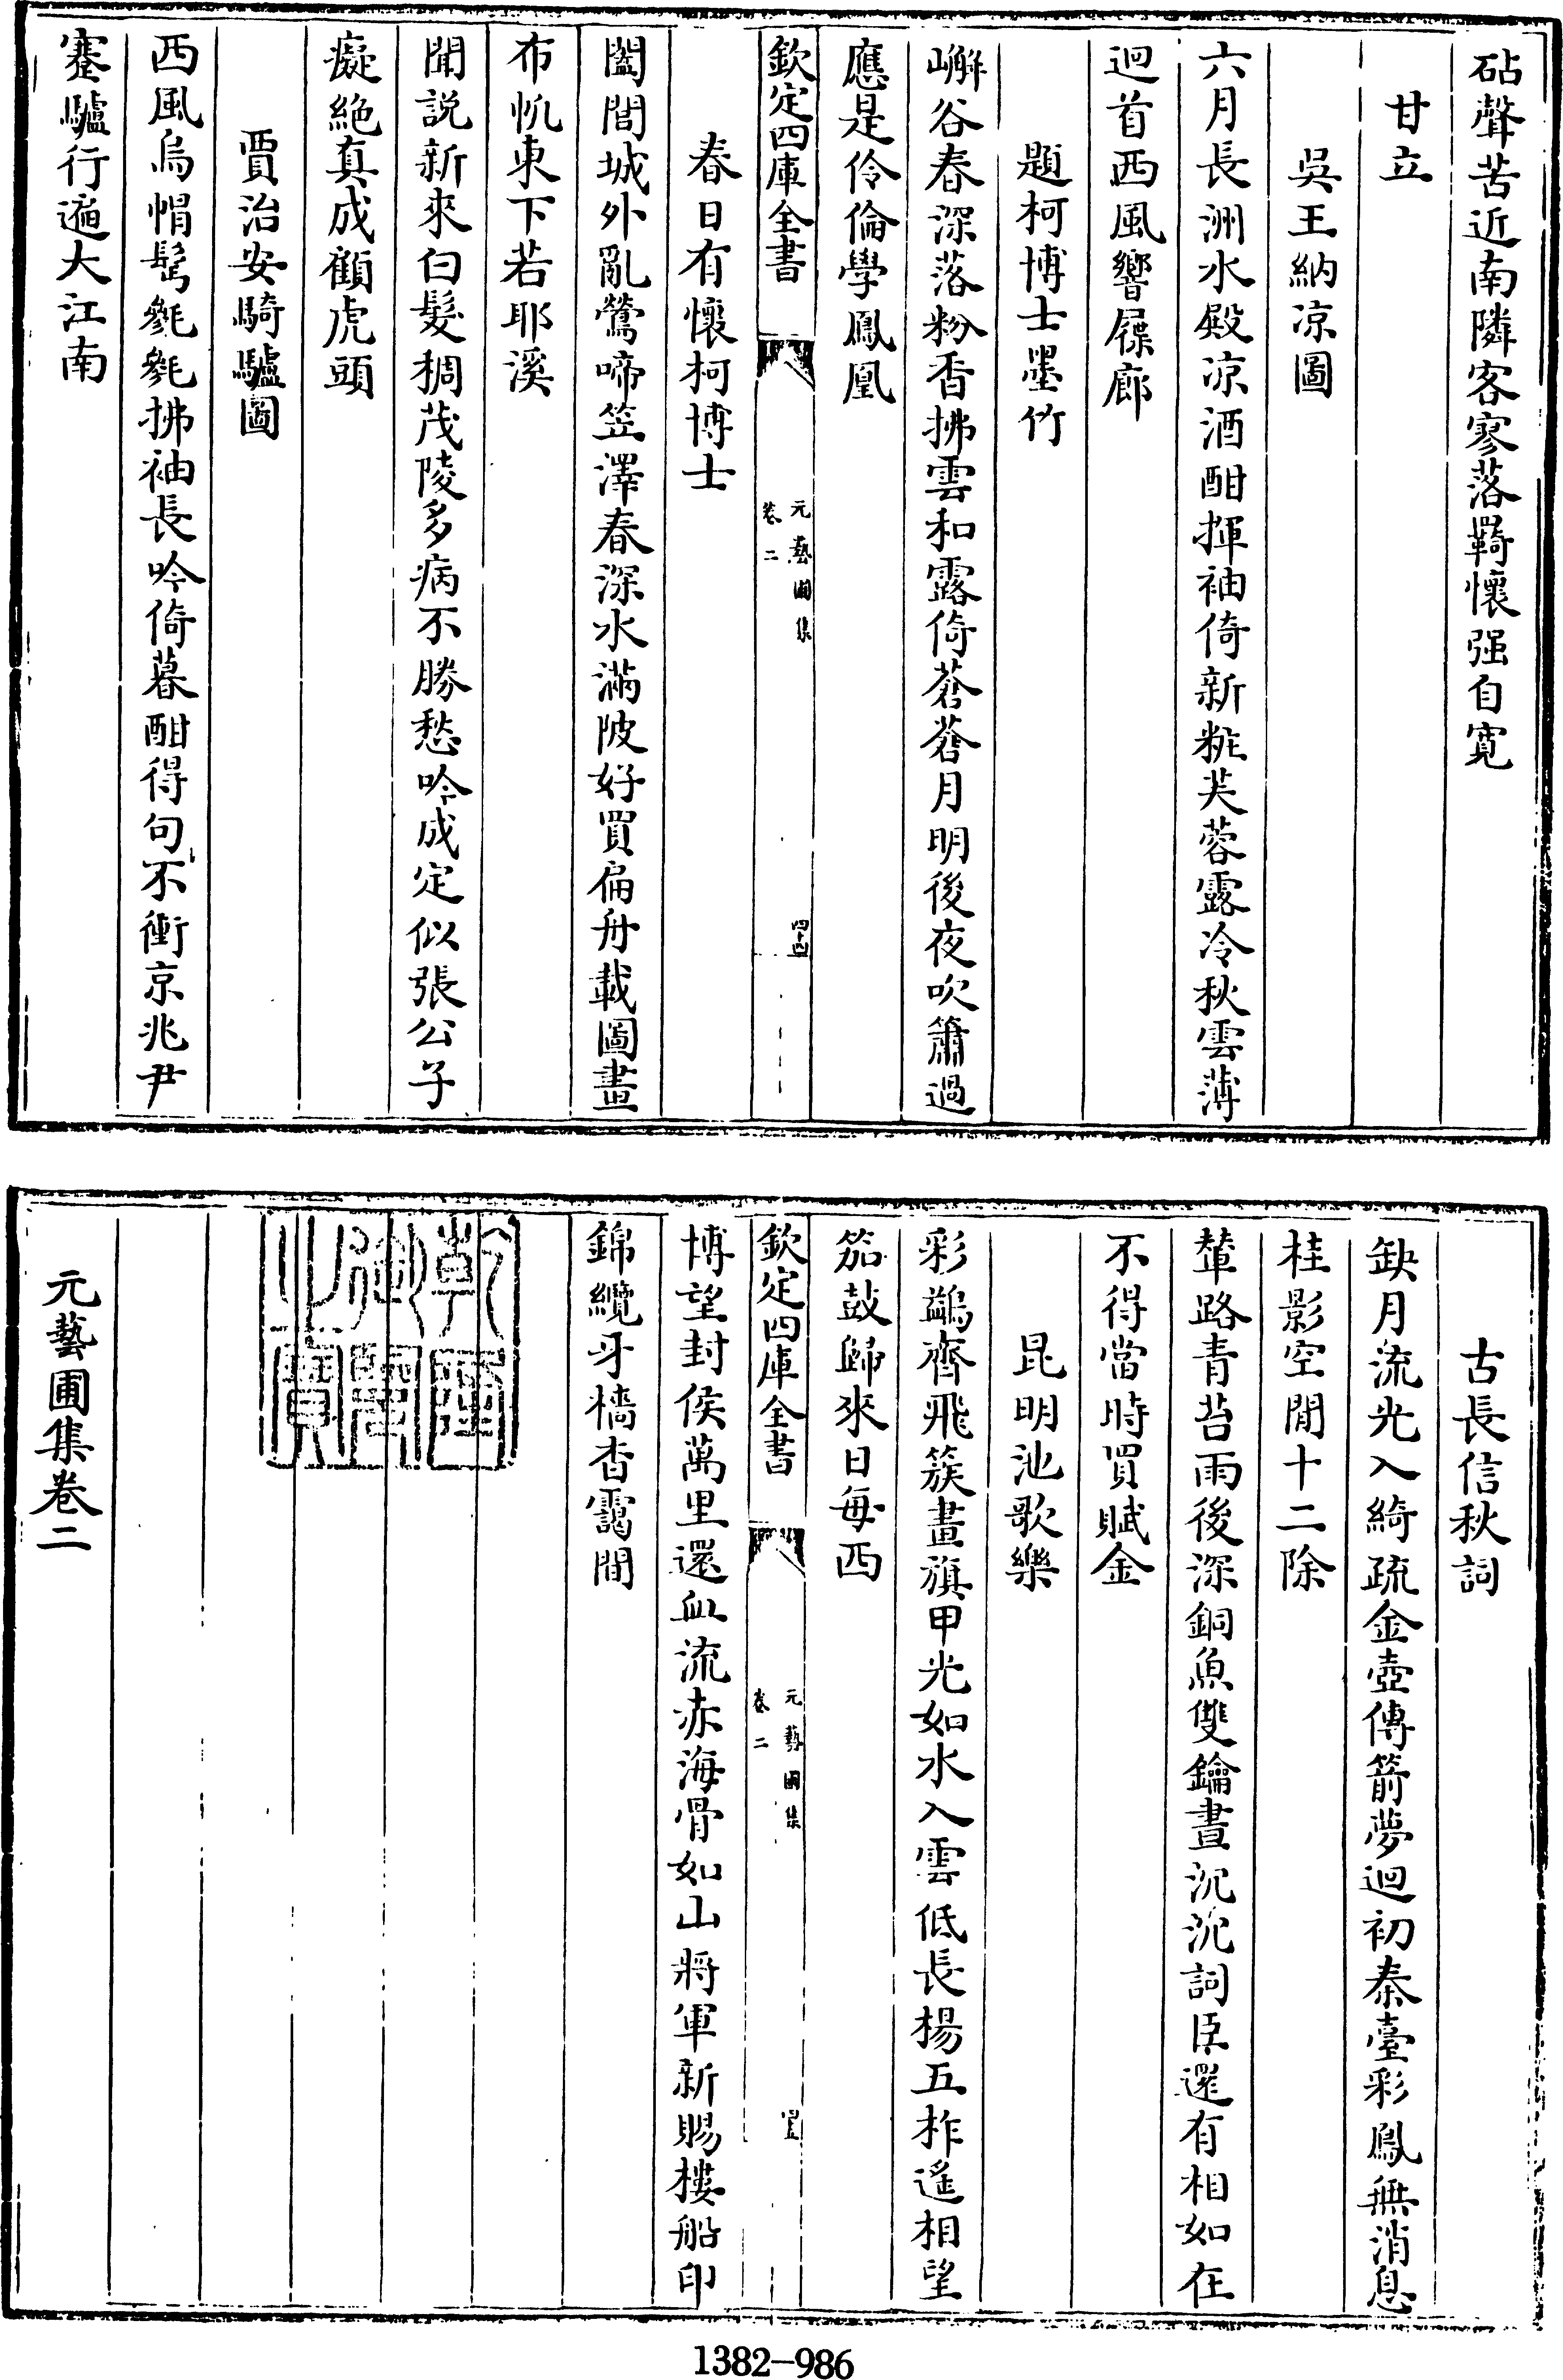 砧聲苦近南隣客寥落羇懷强自寛
甘立
吳王納凉圖
六月長洲水殿凉酒酣揮袖倚新粧芙蓉露冷秋雲薄
迴首西風響屧廊
題柯博士墨竹
嶰谷春深落粉香拂雲和露倚蒼蒼月明後夜吹簫過
應是伶倫學鳳凰
欽定四庫全書
元藝圃集
卷二
四十四
春日有懷柯博士
闔閭城外亂鶯啼笠澤春深水滿陂好買扁舟載圖畫
布帆東下若耶溪
聞説新來白髮稠茂陵多病不勝愁吟成定似張公子
癡絶真成顧虎頭
賈治安騎驢圖
西風烏帽髩毿毿拂袖長吟倚暮酣得句不衝京兆尹
蹇驢行遍大江南
古長信秋詞
缺月流光入綺疏金壺傳箭夢迴初秦臺彩鳳無消息
桂影空閒十二除
輦路青苔雨後深銅魚雙鑰晝沉沉詞臣還有相如在
不得當時買賦金
昆明池歌樂
彩鷁齊飛簇畫旗甲光如水入雲低長楊五柞遙相望
笳鼓歸來日每西
欽定四庫全書
元藝圃集
卷二
博望封侯萬里還血流赤海骨如山將軍新賜樓船印
錦纜牙檣杳靄間
乾隆御覽之寶
元藝圃集卷二
1382-986